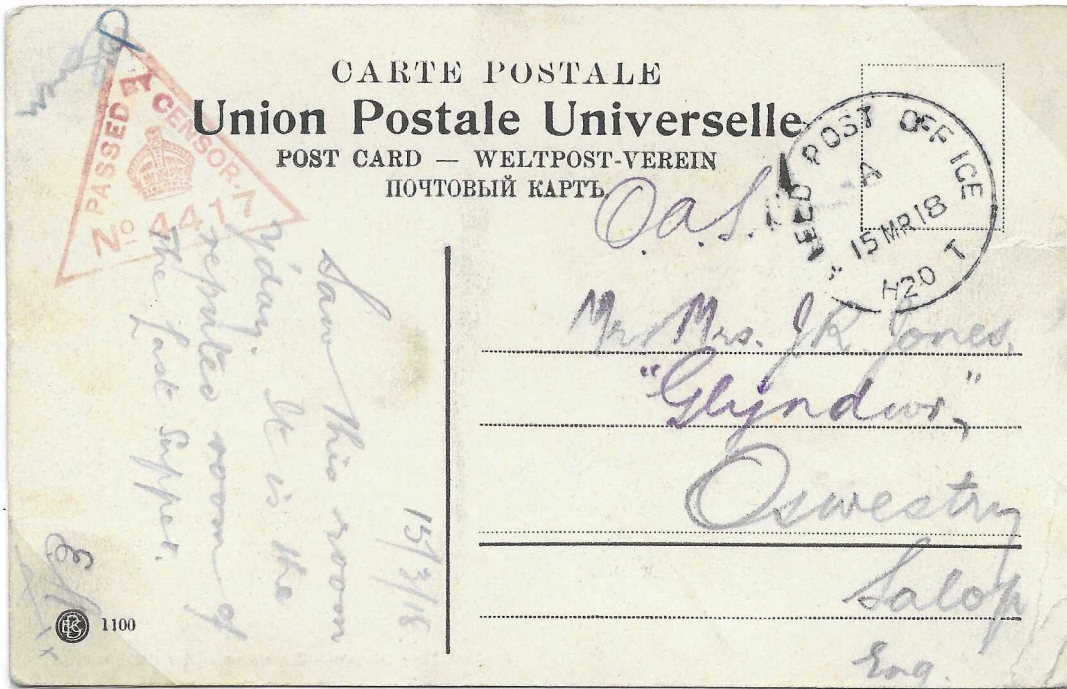 CARTE POSTALE
Union Postale Universelle
POST CARD — WELTPOST-VEREIN
ПОЧТОВЫЙ КАРТЪ
PASSED CENSOR
No 4417
FIELD POST OFFICE
A
15 MR 18
H20 T
O.a.S.
Mr Mrs. J.R. Jones,
"Glyndwr,"
Oswestry
Salop
Eng.
15/3/18.
Saw this room
y'day. It is the
reputed room of
the Last Supper.
1100